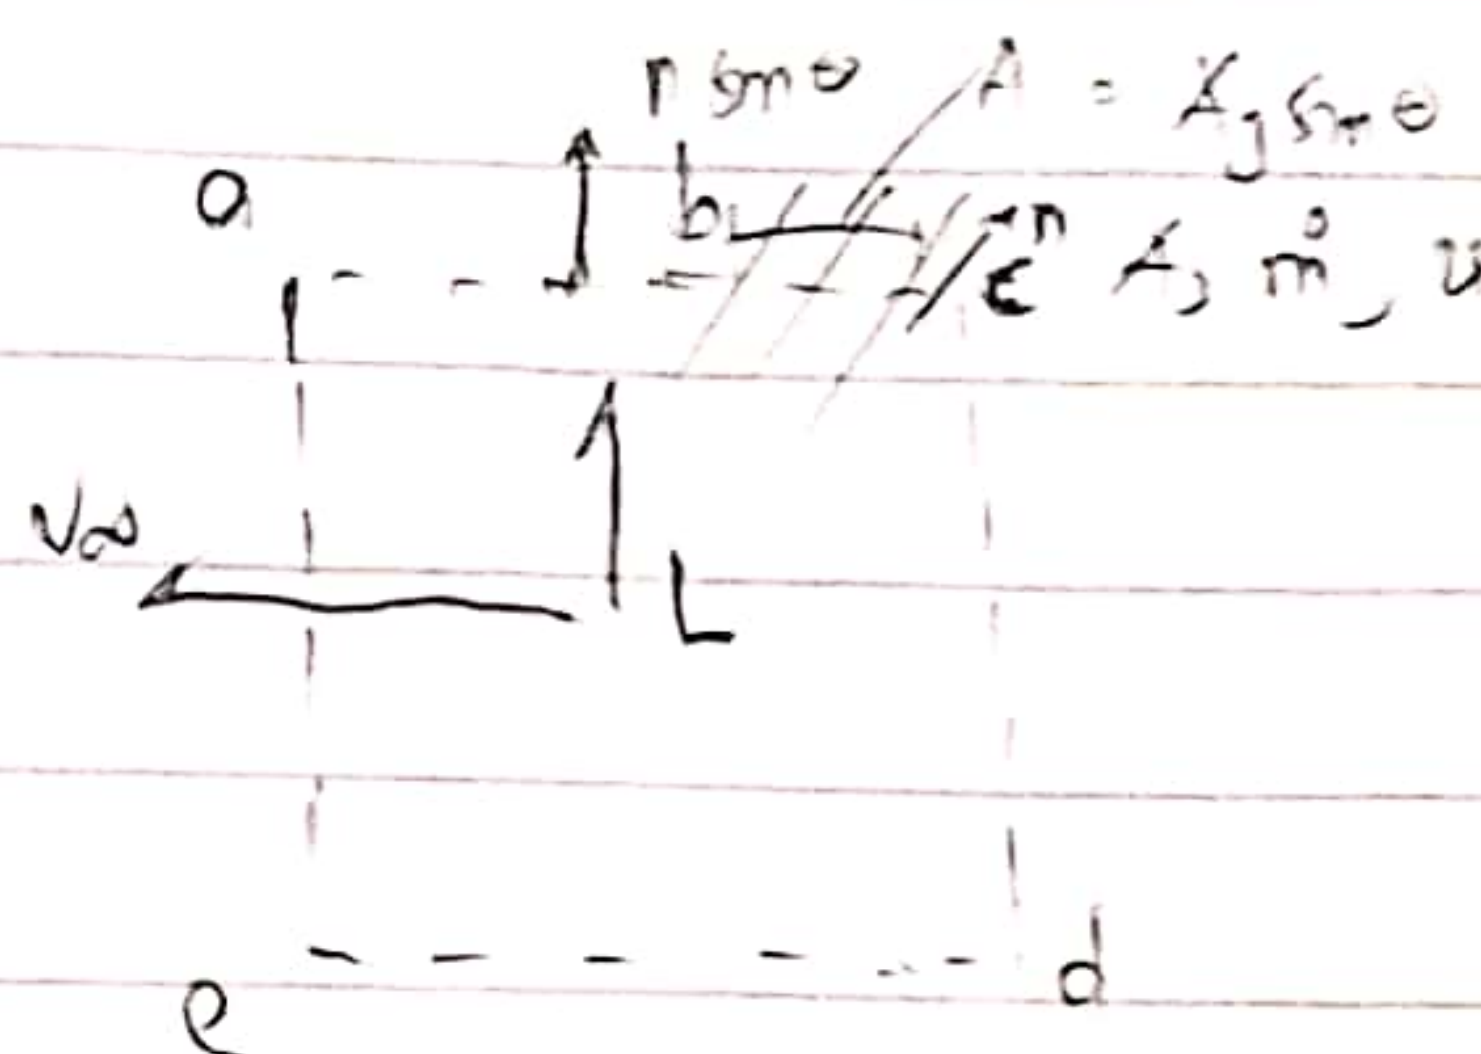 n sin θ A = Aj sin θ
a b n
c A, ṁ, v
V∞
L
d
e